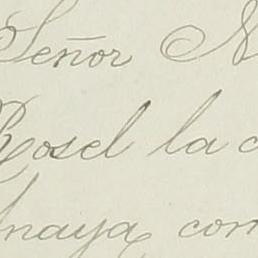 Señor
Rosel la
naya com